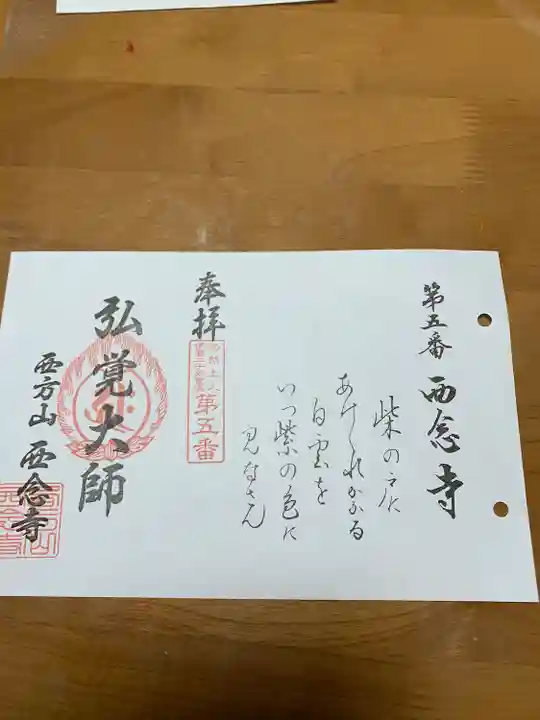 第五番 西念寺
柴の戸に
あけくれかかる
白雲を
いつ紫の色に
見なさん
奉拝
第五番
弘覚大師
西方山 西念寺